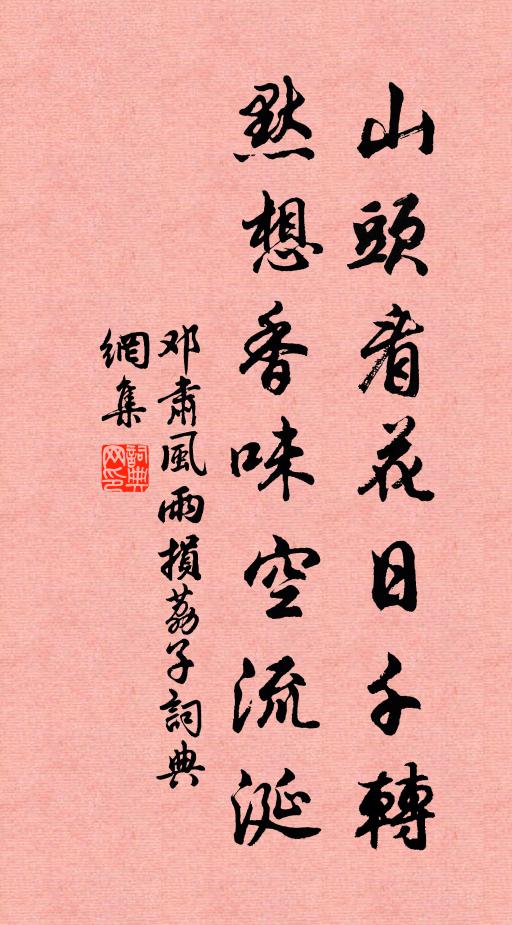 山頭看花日千轉
默想香味空流涎
邓肅風雨損荔子詞典
網集
詞典
网印